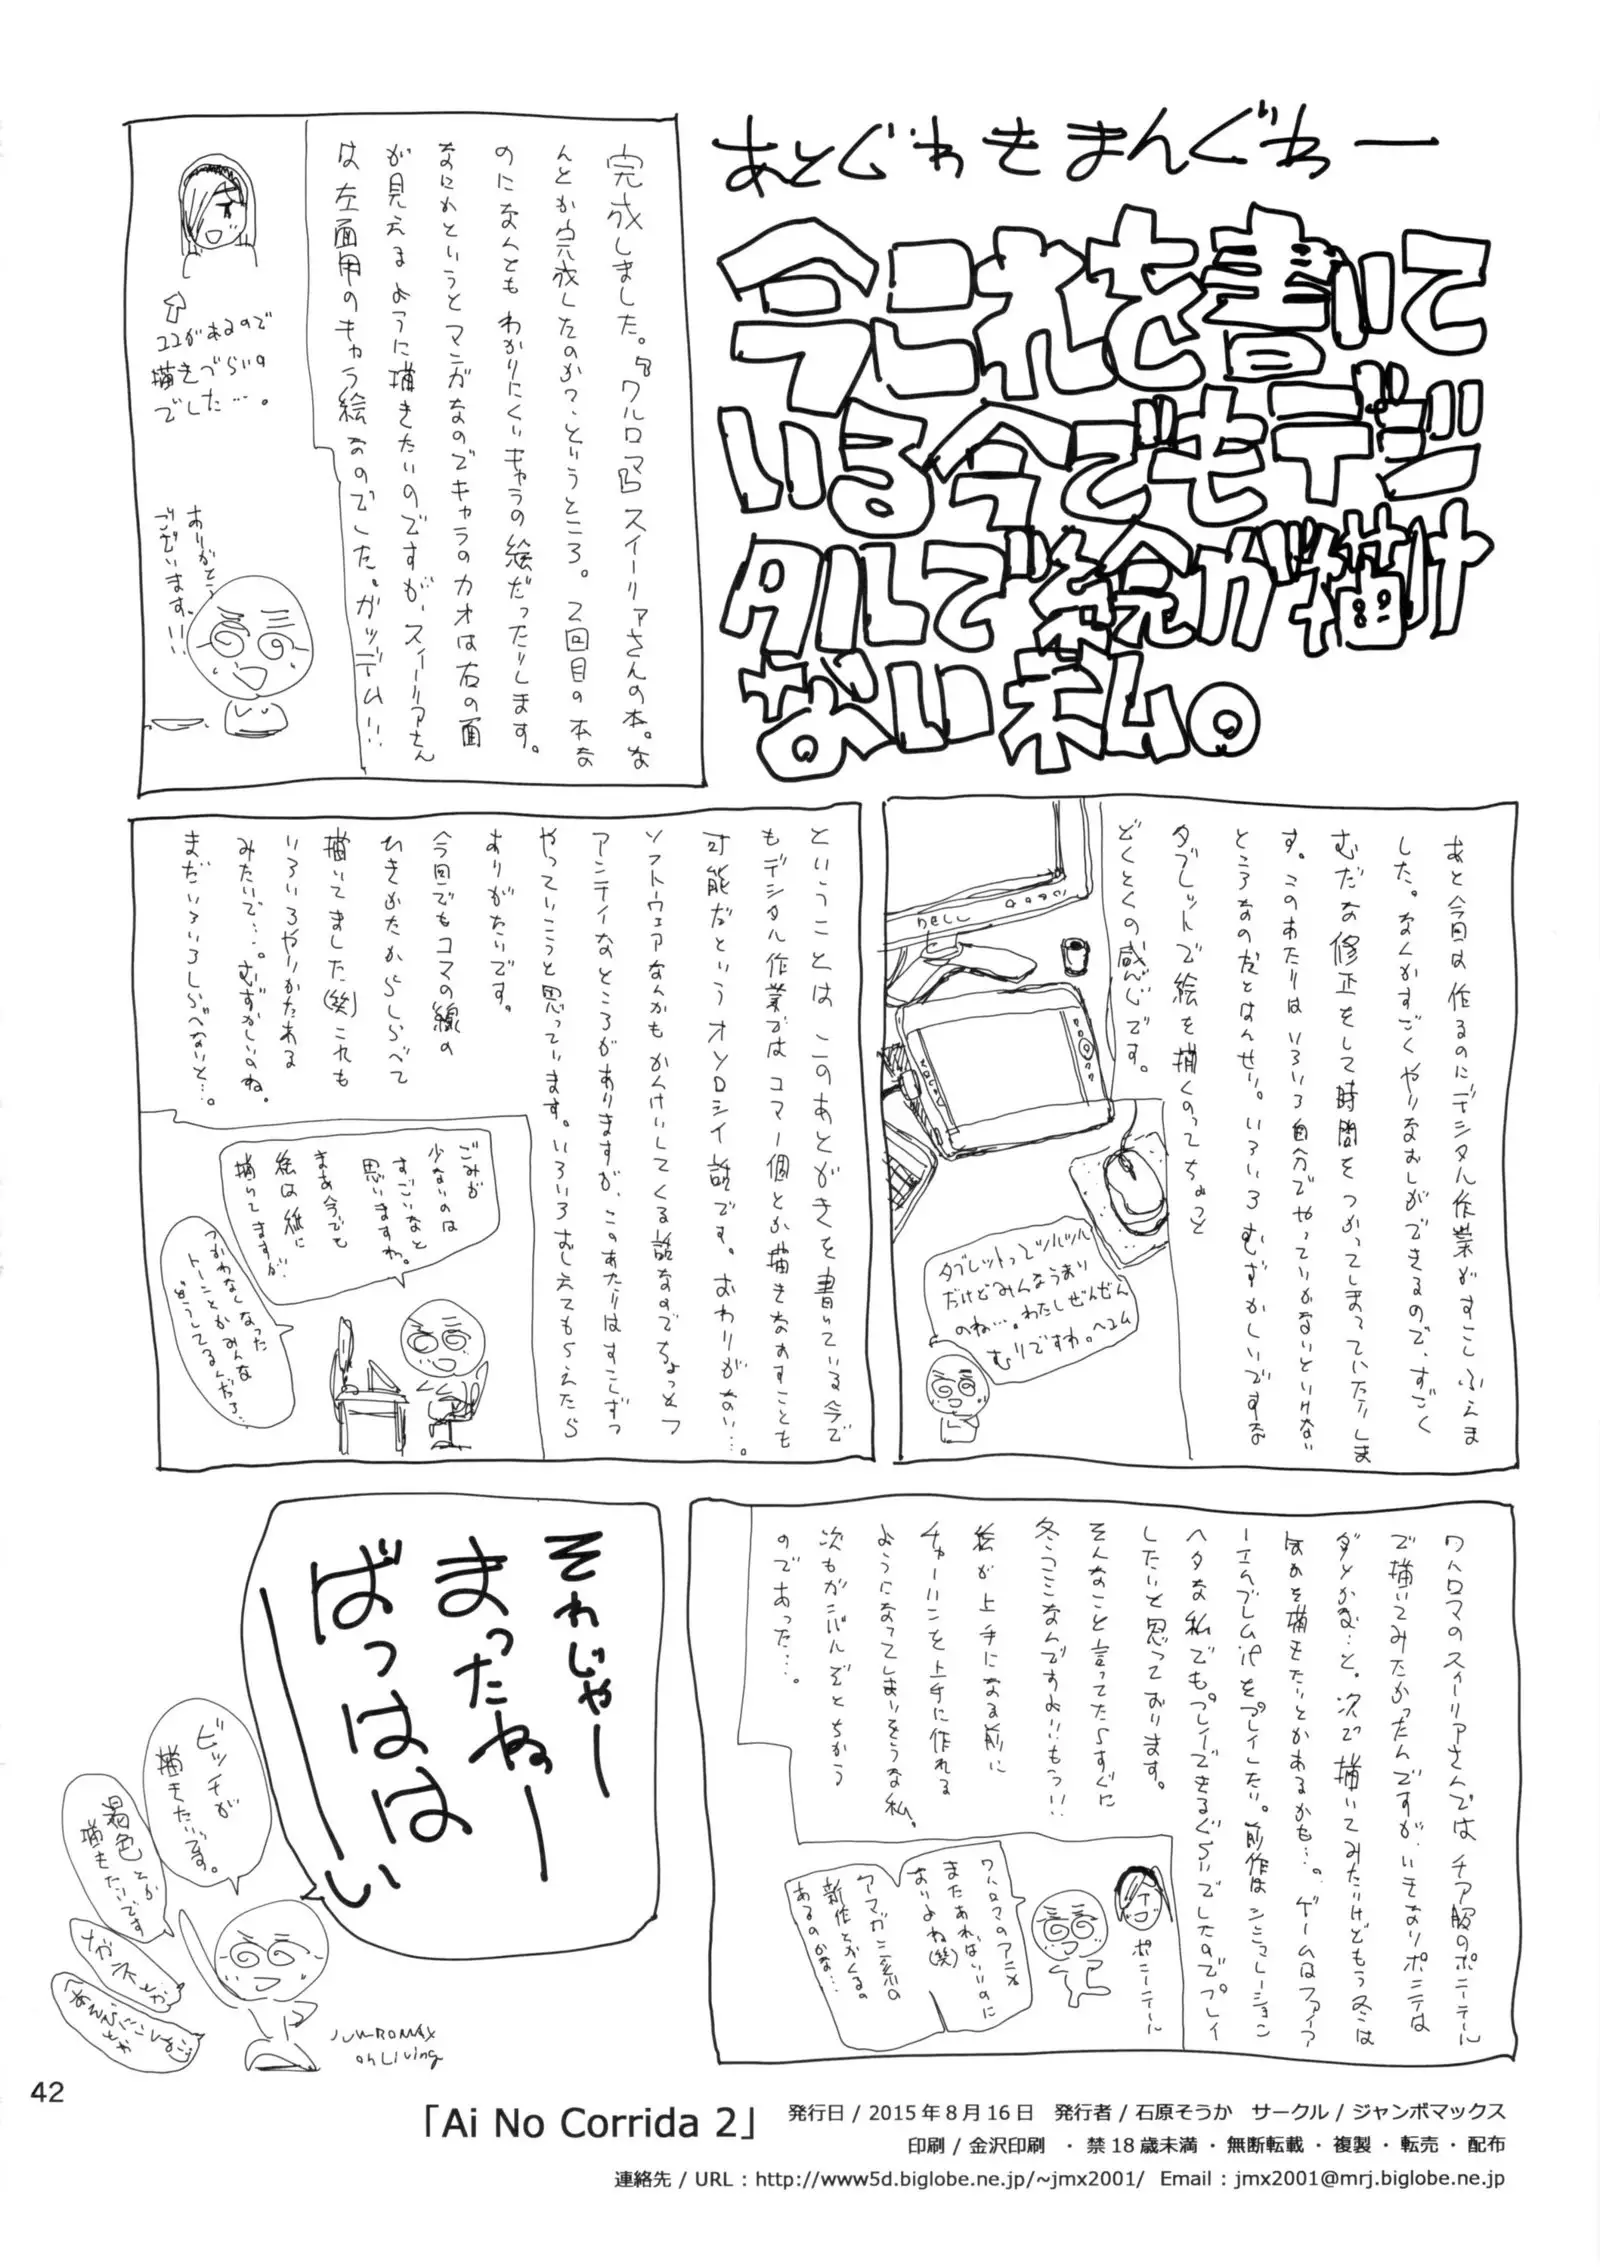 あとぐわきまんぐわー
今これを書いて
いる今でもデジ
タルで絵が描け
ない私。
完成しました。『ワルロマ』スイーリアさんの本。な
んとか完成したのか?というところ。2回目の本な
のになんとも わかりにくいキャラの絵だったりします。
なにかというとマンガなのでキャラのカオは右の面
が見えるように描きたいのですが、スイーリアさん
は左面用のキャラ絵なのでした。ガッデム!!
ココがあるので
描きづらいの
でした…。
ありがとう
ございます!!
あと今回は作るのにデジタル作業がすこしふえま
した。なんかすごくやりなおしができるので、すごく
むだな修正をして時間をつかってしまっていたりしま
す。このあたりはいろいろ自分でやっていかないといけない
ところなのだとはんせい。いろいろむずかしいですな
タブレットで絵を描くのってちょっと
どくとくの感じです。
DELL
タブレットってツルツル
だけどみんなうまい
のね…。わたしぜんぜん
むりですわ。
ということは このあとがきを書いている今で
もデジタル作業では コマ一個とか描きなおすことも
可能だという オソロシイ話です。おわりがない…。
ソフトウェアなんかもかんけいしてくる話なのでちょっとつ
アンティなところがありますが、このあたりはすこしずつ
やっていこうと思っています。いろいろおしえてもらえたら
ありがたいです。
今回でもコマの線の
ひきかたからしらべて
描いてました(笑)これも
いろいろやりかたある
みたいで…。むずかしいのね。
まだいろいろしらべないと…。
ごみが
少ないのは
すごいなと
思いますわ。
まあ今でも
絵は紙に
描いてますが
つかわなくなった
トーンとかみんな
どうしてるんだろ…
ワルロマのスイーリアさんではチア服のポニーテール
で描いてみたかったんですが、いきなりポニテは
ダメかな…と。次で描いてみたいけどもう冬は
ヘタな私でもプレイできるぐらいでしたのでプレイ
したいと思っております。
そんなこと言ってたらすぐに
冬コミなんですよ!!もう!!
絵が上手になる前に
チャーハンを上手に作れる
ようになってしまいそうな私、
次もガンバルぞとちかう
のであった…。
ポニーテール
ワルロマのアニメ
またあればいいのに
ないよね(笑)
アマガミ系の
新作とかくるの
あるのかな…
それじゃー
まったねー
ばっははーい
ビッチが
描きたいです。
褐色とか
描きたいです
JUMBOMAX
oh Living
42
「Ai No Corrida 2」
発行日 / 2015年8月16日 発行者 / 石原そうか サークル / ジャンボマックス
印刷 / 金沢印刷 ・禁18歳未満・無断転載・複製・転売・配布
連絡先 / URL : http://www5d.biglobe.ne.jp/~jmx2001/ Email : jmx2001@mrj.biglobe.ne.jp